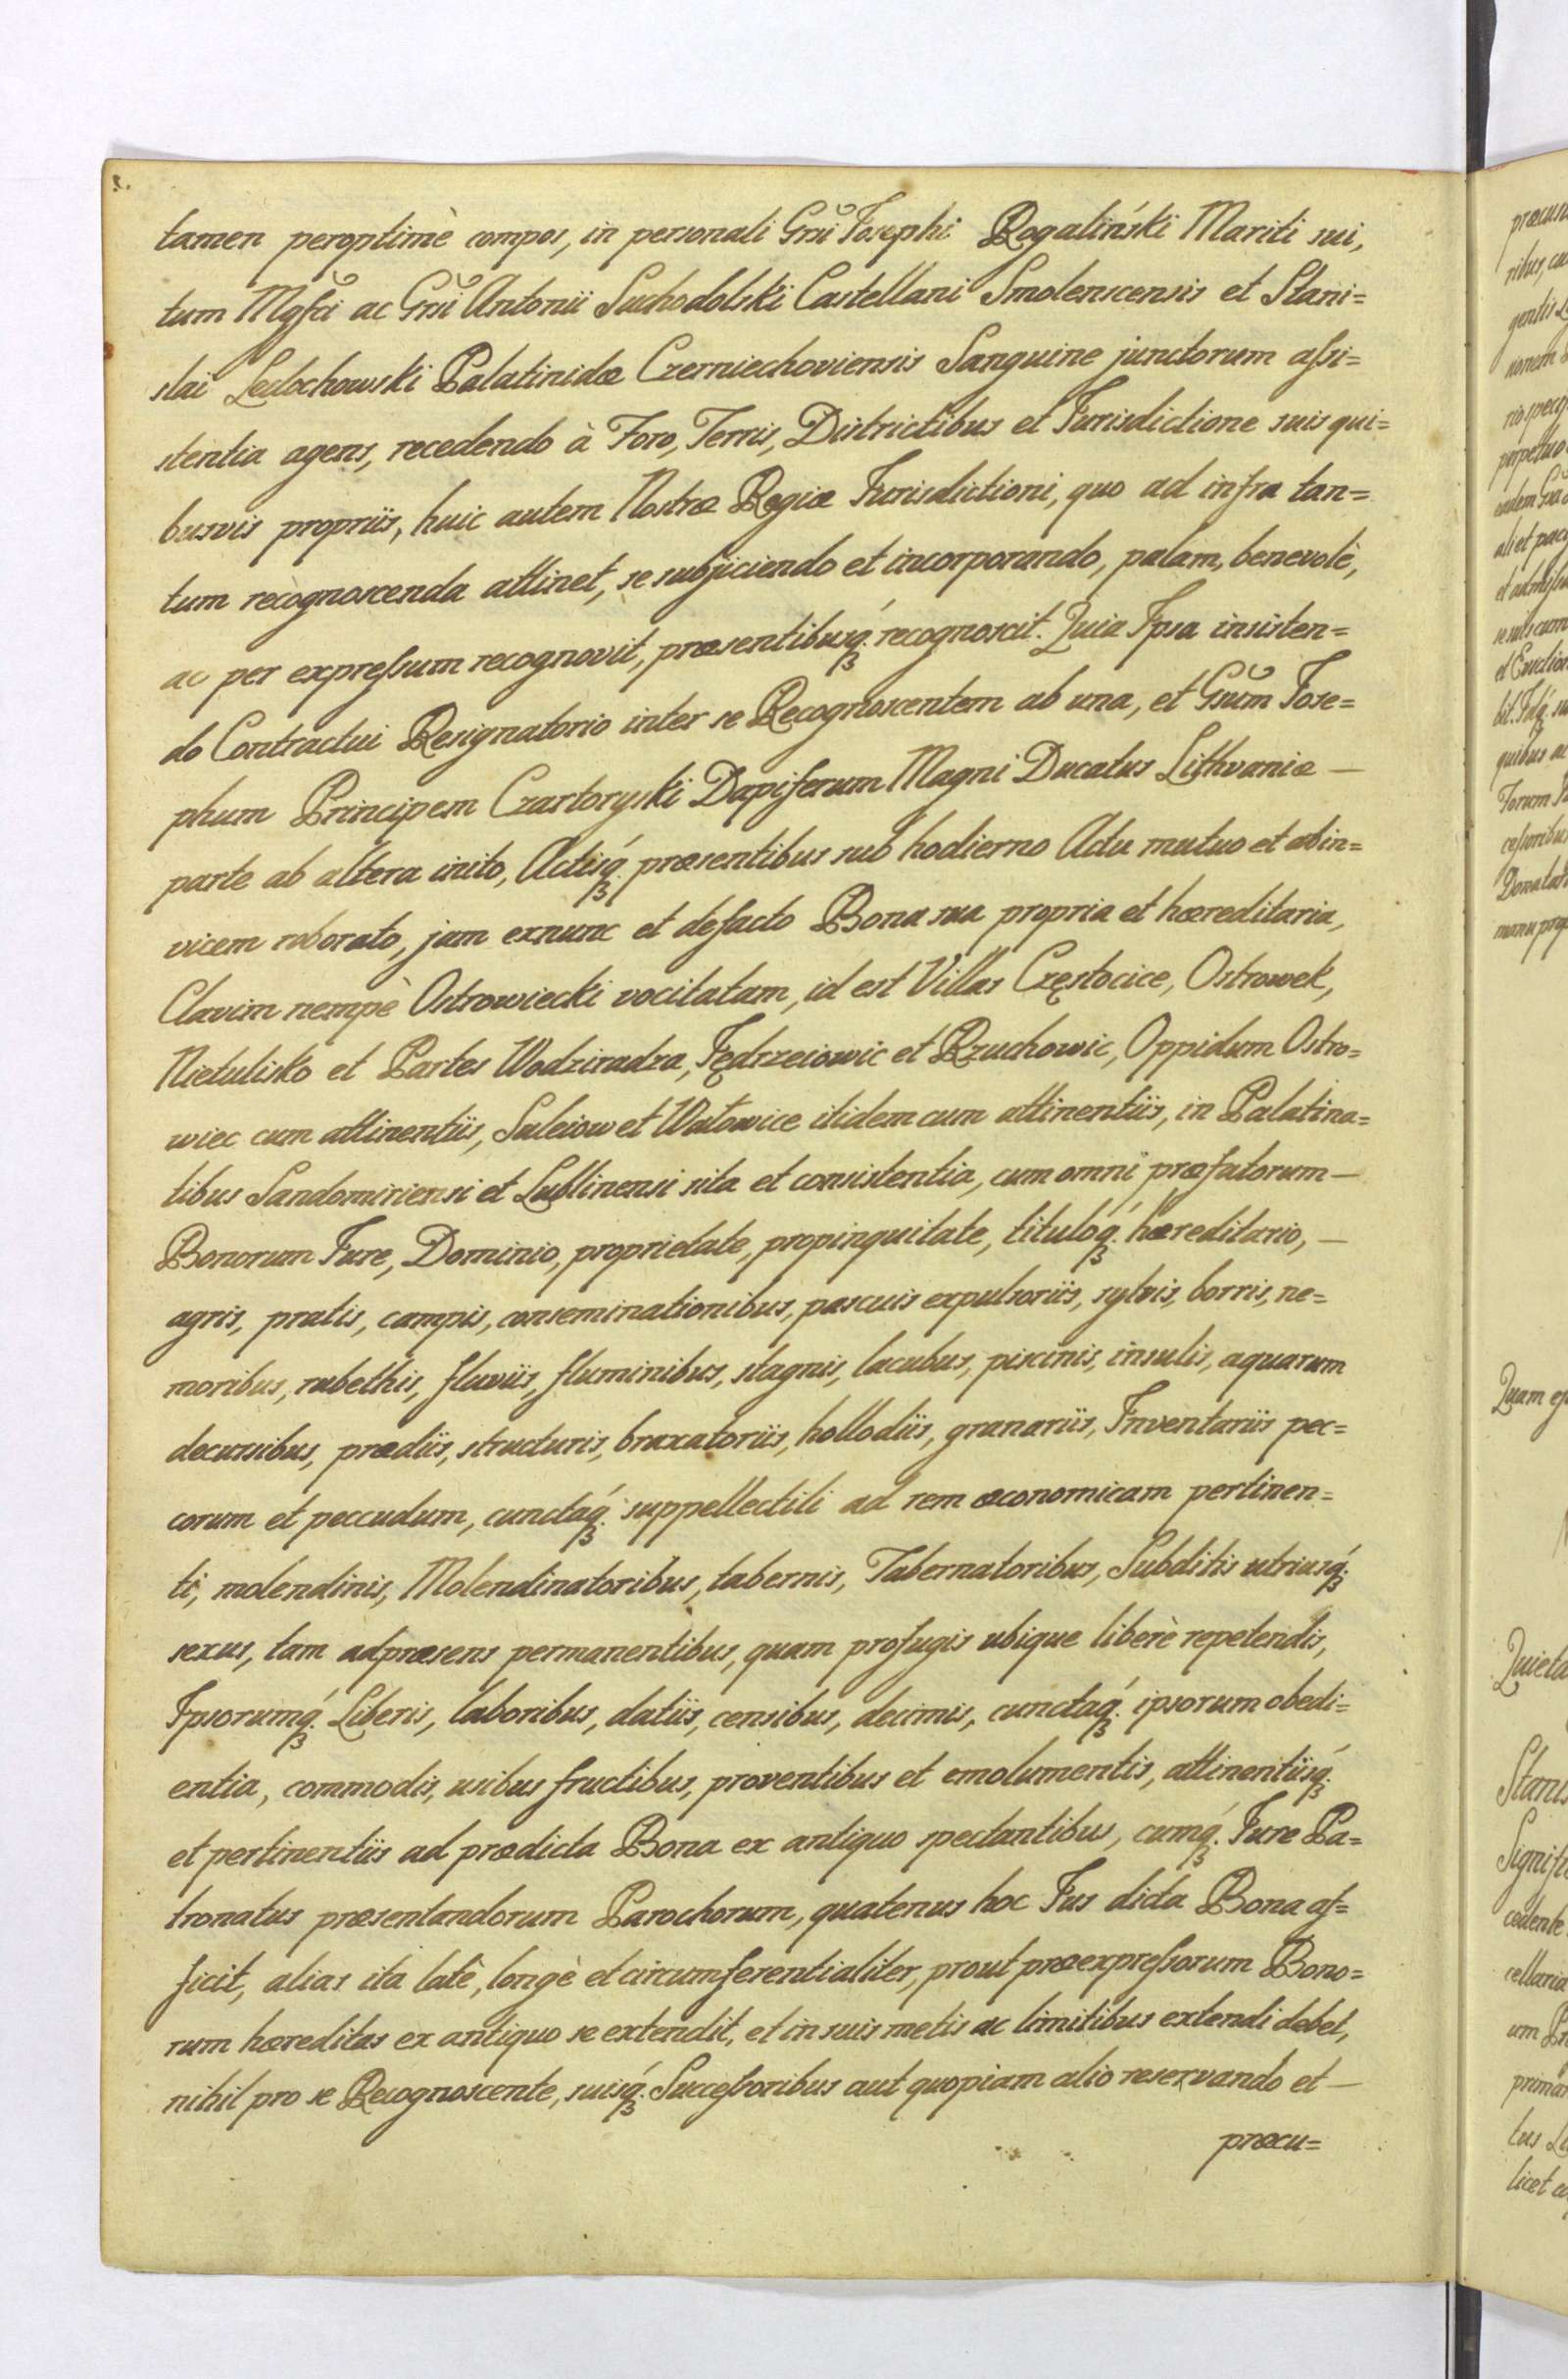 tamen peroptimè compos, in personali Grsi Josephi Rogaliński Mariti sui,
tum Mgfci ac Grsi Antonii Suchodolski Castellani Smolenscensis et Stani=
slai Ledochowski Palatinidæ Czerniechoviensis Sanguine junctorum assi=
stentia agens, recedendo à Foro, Terris, Districtibus et Jurisdictione suis qui=
busvis propriis, huic autem Nostræ Regiæ Jurisdictioni, quo ad infra tan=
tum recognoscenda attinet, se subjiciendo et incorporando, palam, benevolè,
ac per expressum recognovit, præsentibusq́ꝫ recognoscit. Quia Ipsa insisten=
do Contractui Resignatorio inter se Recognoscentem ab una, et Gsum Jose=
phum Principem Czartoryski Dapiferum Magni Ducatus Lithvaniæ —
parte ab altera inito, Actisq́ꝫ præsentibus sub hodierno Actu mutuo et abin=
vicem roborato, jam exnunc et defacto Bona sua propria et hæreditaria,
Clavim nempè Ostrowiecki vocitatam, id est Villas Częstocice, Ostrowek,
Nietulisko et Partes Wodziradza, Jędrzeiowic et Rzuchowic, Oppidum Ostro=
wiec cum attinentiis, Suleiow et Wałowice itidem cum attinentiis, in Palatina=
tibus Sandomiriensi et Lublinensi sita et consistentia, cum omni præfatorum —
Bonorum Jure, Dominio, proprietate, propinquitate, tituloq́ꝫ hæreditario, —
agris, pratis, campis, conseminationibus, pascuis expulsoriis, sylvis, borris, ne=
moribus, rubethis, fluviis, fluminibus, stagnis, lacubus, piscinis, insulis, aquarum
decursibus, prædiis, structuris, braxatoriis, hollodiis, granariis, Inventariis pec=
corum et peccudum, cunctaq́ꝫ suppellectili ad rem æconomicam pertinen=
ti, molendinis, Molendinatoribus, tabernis, Tabernatoribus, Subditis utriusq́ꝫ
sexus, tam adpræsens permanentibus, quam profugis ubique liberè repetendis,
Ipsorumq́ꝫ Liberis, laboribus, datiis, censibus, decimis, cunctaq́ꝫ ipsorum obedi=
entia, commodis, usibus fructibus, proventibus et emolumentis, attinentiisq́ꝫ
et pertinentiis ad prædicta Bona ex antiquo spectantibus, cumq́ꝫ Jure Pa=
tronatus præsentandorum Parochorum, quatenus hoc Jus dicta Bona af=
ficit, alias ita latè, longè et circumferentialiter, prout præexpressorum Bono=
rum hæreditas ex antiquo se extendit, et in suis metis ac limitibus extendi debet,
nihil pro se Recognoscente, suisq́ꝫ Successoribus aut quopiam alio reservando et —
præcu=